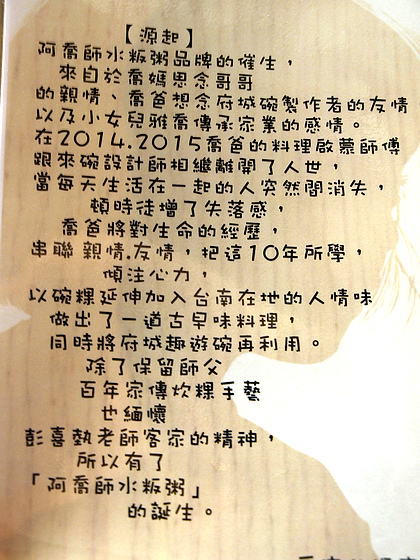 【源起】
阿喬師水粄粥品牌的催生，
來自於喬媽思念哥哥
的親情、喬爸想念府城碗製作者的友情
以及小女兒雅喬傳承家業的感情。
在2014.2015喬爸的料理啟蒙師傅
跟來碗設計師相繼離開了人世，
當每天生活在一起的人突然間消失，
頓時徒增了失落感，
喬爸將對生命的經歷，
串聯 親情.友情，把這10年所學，
傾注心力，
以碗粿延伸加入台南在地的人情味
做出了一道古早味料理，
同時將府城趣遊碗再利用。
除了保留師父
百年家傳炊粿手藝
也緬懷
彭喜執老師客家的精神，
所以有了
「阿喬師水粄粥」
的誕生。